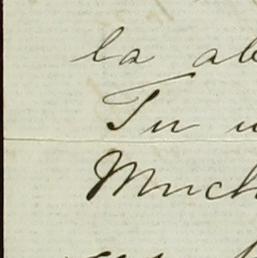 la ab
Tu u
Much